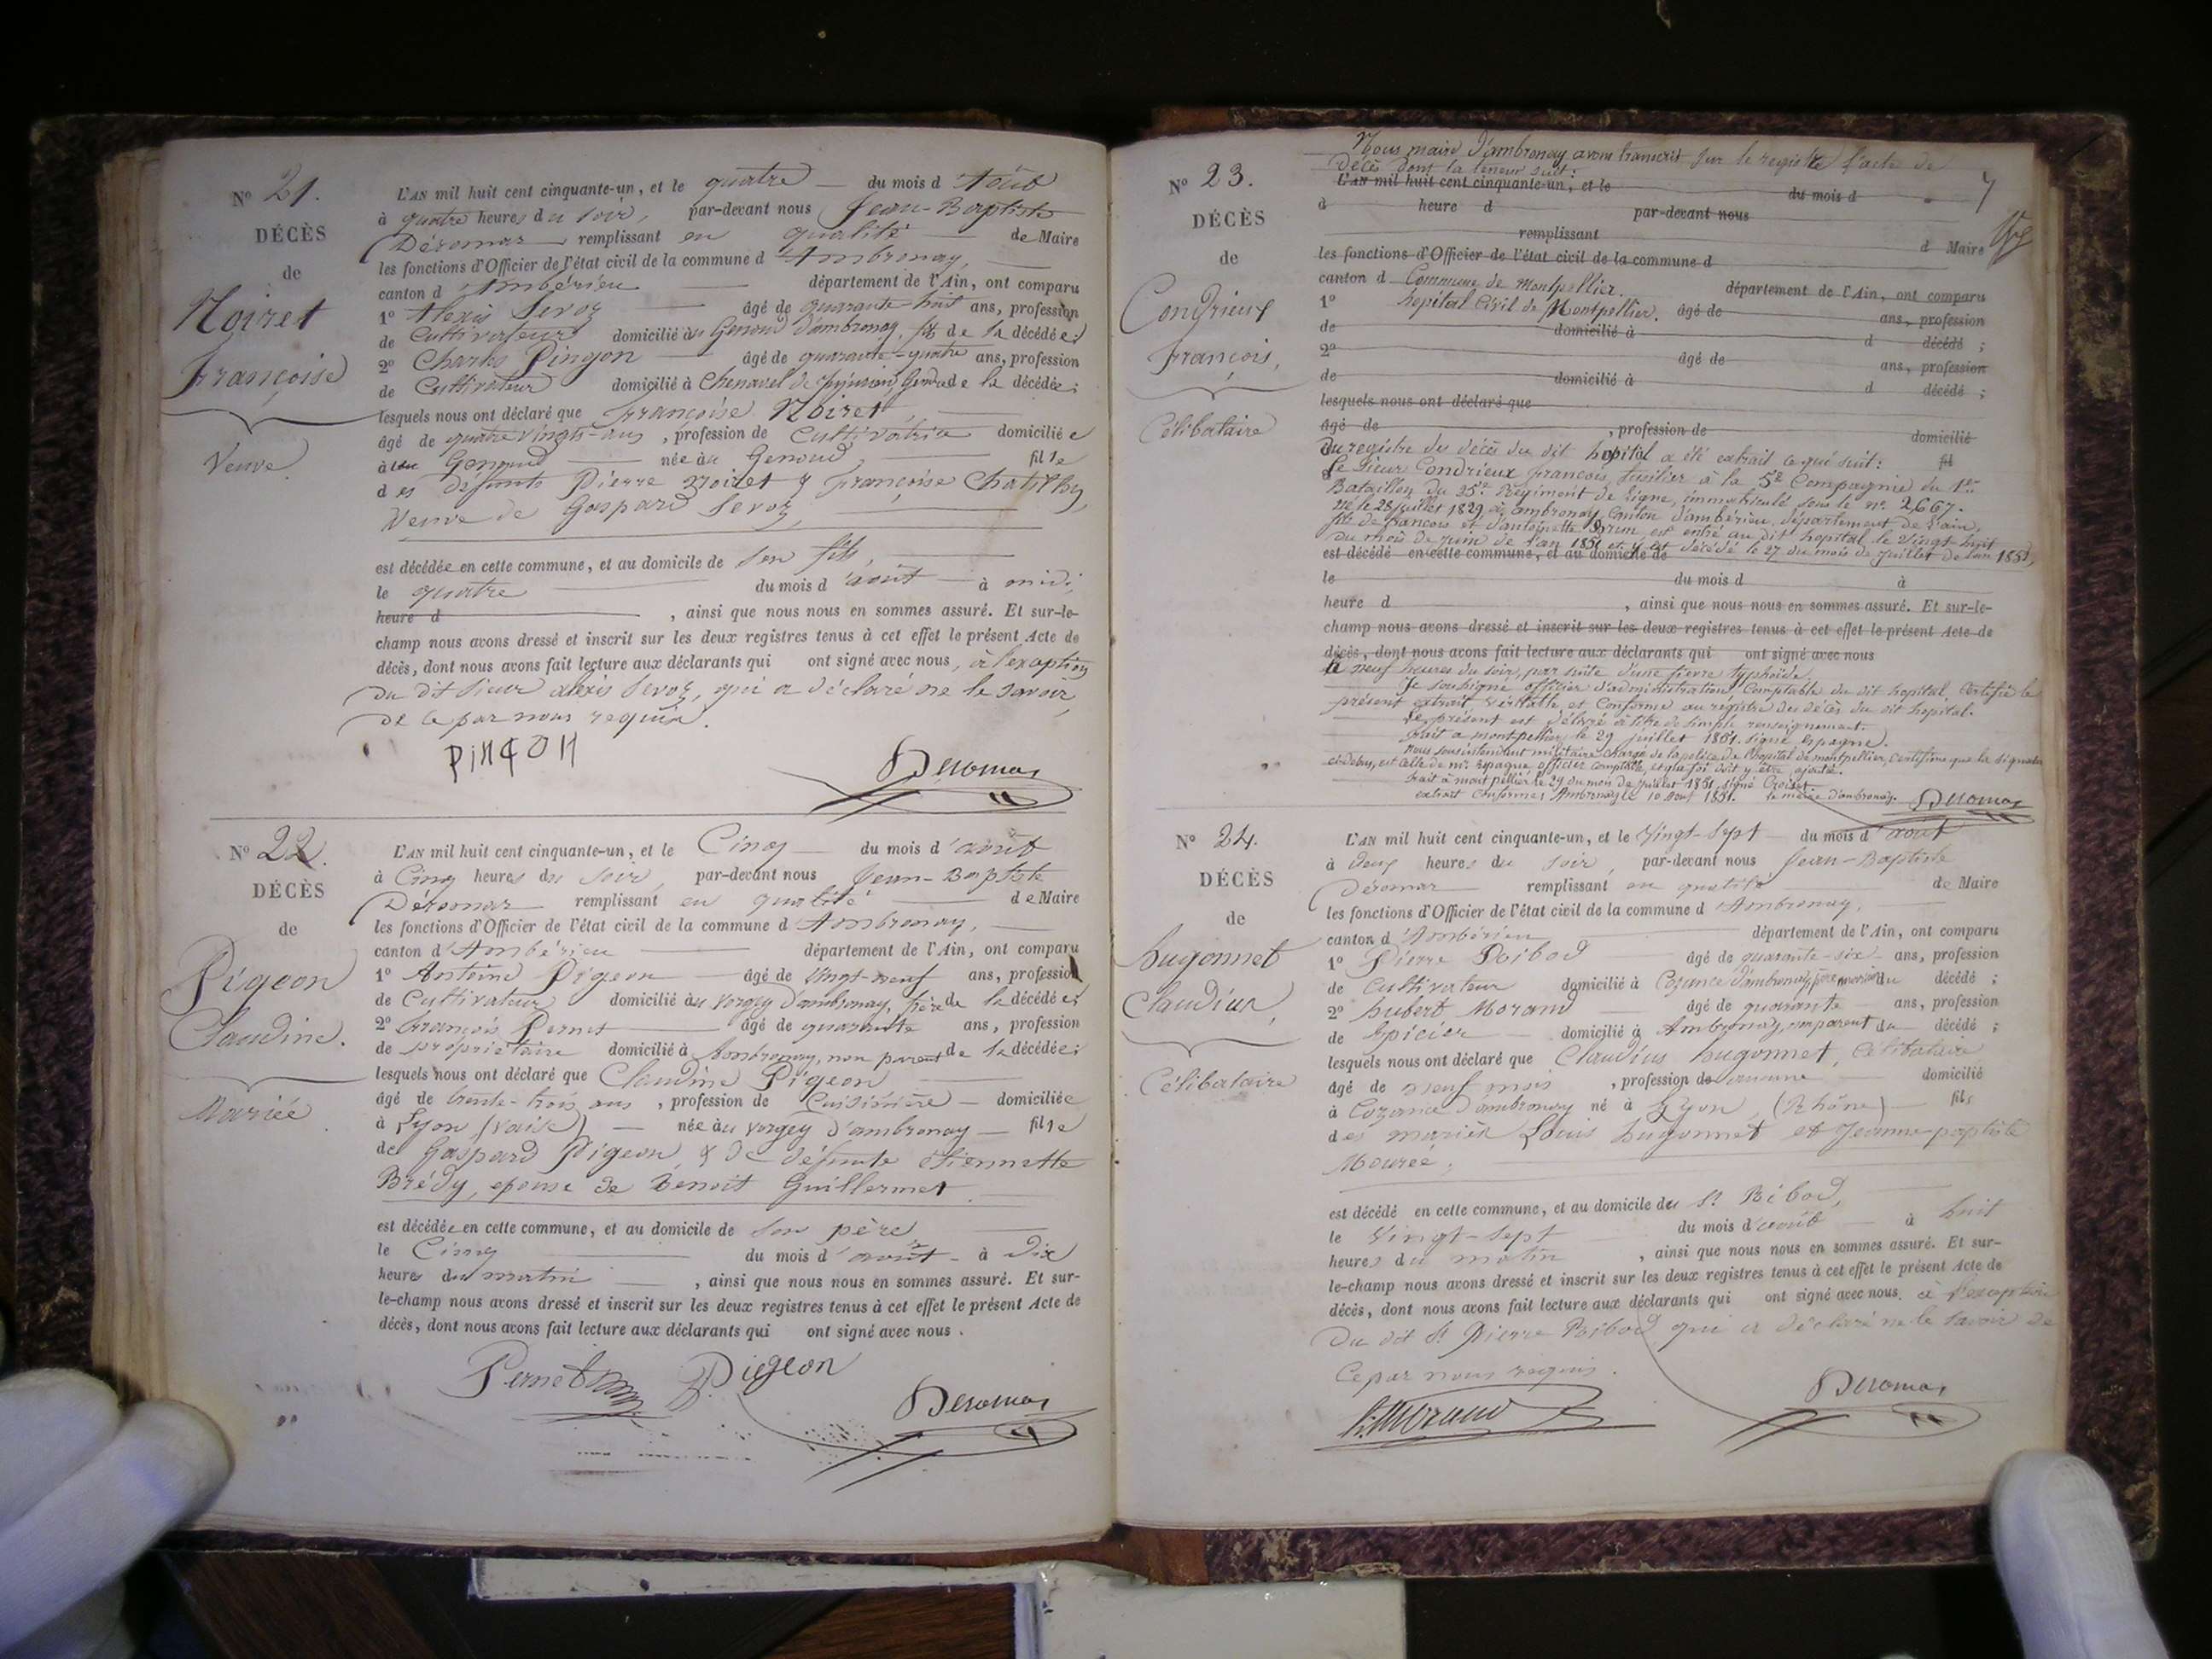 N° 21.
DÉCÈS
de
Noiret
Françoise
Veuve
L'AN mil huit cent cinquante-un, et le quatre du mois d'Août
à quatre heures du soir, par-devant nous Jean-Baptiste
Déromas remplissant en qualité de Maire
les fonctions d'Officier de l'état civil de la commune d'Ambronay,
canton d'Ambérieu département de l'Ain, ont comparu
1° Alexis Sevoz âgé de quarante-huit ans, profession
de Cultivateur domicilié au Genoud d'ambronay, fils de la décédée;
2° Charles Pingon âgé de quarante-quatre ans, profession
de Cultivateur domicilié à Chenavel de Jujurieu, Gendre de la décédée;
lesquels nous ont déclaré que Françoise Noiret,
âgé de quatre vingts-ans, profession de Cultivatrice domiciliée
à au Genoud née au Genoud, fille
des défunts Pierre Noiret & Françoise
Veuve de Gaspard Sevoz,
est décédée en cette commune, et au domicile de son fils,
le quatre du mois d'août à midi,
heure d , ainsi que nous nous en sommes assuré. Et sur-le-
champ nous avons dressé et inscrit sur les deux registres tenus à cet effet le présent Acte de
décès, dont nous avons fait lecture aux déclarants qui ont signé avec nous, à l'exception
du dit sieur alexis Sevoz, qui a déclaré ne le savoir,
de ce par nous requis.
Deromas
N° 22.
DÉCÈS
de
Pigeon
Claudine.
Mariée
L'AN mil huit cent cinquante-un, et le Cinq du mois d'août
à Cinq heures du soir, par-devant nous Jean-Baptiste
Déromas remplissant en qualité de Maire
les fonctions d'Officier de l'état civil de la commune d'Ambronay,
canton d'Ambérieu département de l'Ain, ont comparu
1° Antoine Pigeon âgé de vingt-neuf ans, profession
de Cultivateur domicilié au vorgey d'ambronay, frère de la décédée;
2° François Pernet âgé de quarante ans, profession
de propriétaire domicilié à Ambronay, non parent de la décédée;
lesquels nous ont déclaré que Claudine Pigeon
âgé de trente-trois ans, profession de Cuisinière domiciliée
à Lyon, (Vaise) née au vorgey d'ambronay fille
de Gaspard Pigeon, & de défunte étiennette
Brédy, epouse de Benoit Guillermet.
est décédée en cette commune, et au domicile de son père
le Cinq du mois d'août à Dix
heures du matin , ainsi que nous nous en sommes assuré. Et sur-
le-champ nous avons dressé et inscrit sur les deux registres tenus à cet effet le présent Acte de
décès, dont nous avons fait lecture aux déclarants qui ont signé avec nous.
Pernet Pigeon
Deromas
N° 23.
DÉCÈS
de
Condrieux
François,
Célibataire
Nous maire d'ambronay avons transcrit sur le registre l'acte de
décès dont la teneur suit:
L'AN mil huit cent cinquante-un, et le du mois d
à heure d par-devant nous
remplissant d Maire
les fonctions d'Officier de l'état civil de la commune d
canton d Commune de Montpellier. département de l'Ain, ont comparu
1° hôpital Civil de Montpellier. âgé de ans, profession
de domicilié à d décédé ;
2° âgé de ans, profession
de domicilié à d décédé ;
lesquels nous ont déclaré que
âgé de , profession de domicilié
Du registre des décès du dit hopital a été extrait ce qui suit: fil
Le sieur Condrieux françois, fusilier à la 5e Compagnie du 1er
Bataillon du 35e Régiment de Ligne, immatriculé sous le n° 2667.
né le 28 juillet 1829, à ambronay, Canton d'ambérieu, département de l'ain,
fils de francois et d'antoinette Brun, est entré au dit hopital le vingt huit
du mois de juin de l'an 1851 et y est décédé le 27 du mois de juillet de l'an 1851,
est décédé en cette commune, et au domicile de
le du mois d à
heure d , ainsi que nous nous en sommes assuré. Et sur-le-
champ nous avons dressé et inscrit sur les deux registres tenus à cet effet le présent Acte de
décès, dont nous avons fait lecture aux déclarants qui ont signé avec nous
à neuf heures du soir, par suite d'une fievre typhoïde.
Je soussigné officier d'administration, Comptable du dit hopital, certifie le
présent extrait véritable et Conforme au registre des décès du dit hopital.
Le présent est délivré à titre de simple renseignement.
fait a montpellier le 29 juillet 1851. signé Espagne.
Nous sousintendant militaire chargé de la police de l'hopital de montpellier, certifions que la signature
ci-dessus, est celle de mr. Espagne officier comptable, et que foi doit y être ajoutée.
fait à montpellier le 29 du mois de juillet 1851, signé
extrait Conforme, Ambronay le 10 aout 1851. le maire d'ambronay. Deromas
N° 24.
DÉCÈS
de
hugonnet
Claudius,
Célibataire
L'AN mil huit cent cinquante-un, et le Vingt-Sept du mois d'août
à deux heures du soir, par-devant nous Jean-Baptiste
Déromas remplissant en qualité de Maire
les fonctions d'Officier de l'état civil de la commune d'Ambronay,
canton d'Ambérieu département de l'Ain, ont comparu
1° Pierre Ribod âgé de quarante-six ans, profession
de Cultivateur domicilié à Cozance d'ambronay, du décédé ;
2° hubert Morand âgé de quarante ans, profession
de Epicier domicilié à Ambronay, non parent du décédé ;
lesquels nous ont déclaré que Claudius hugonnet, Célibataire
âgé de neuf mois , profession de aucune domicilié
à Cozance d'ambronay né à Lyon, (Rhône) fils
des mariés Louis hugonnet et Jeanne-paptiste
Mourée,
est décédé en cette commune, et au domicile du Sr Ribod,
le Vingt-Sept du mois d'août à huit
heures du matin , ainsi que nous nous en sommes assuré. Et sur-
le-champ nous avons dressé et inscrit sur les deux registres tenus à cet effet le présent Acte de
décès, dont nous avons fait lecture aux déclarants qui ont signé avec nous, à l'exception
du dit Sr Pierre Ribod qui a déclaré ne le savoir de
ce par nous requis.
h. Morand
Deromas